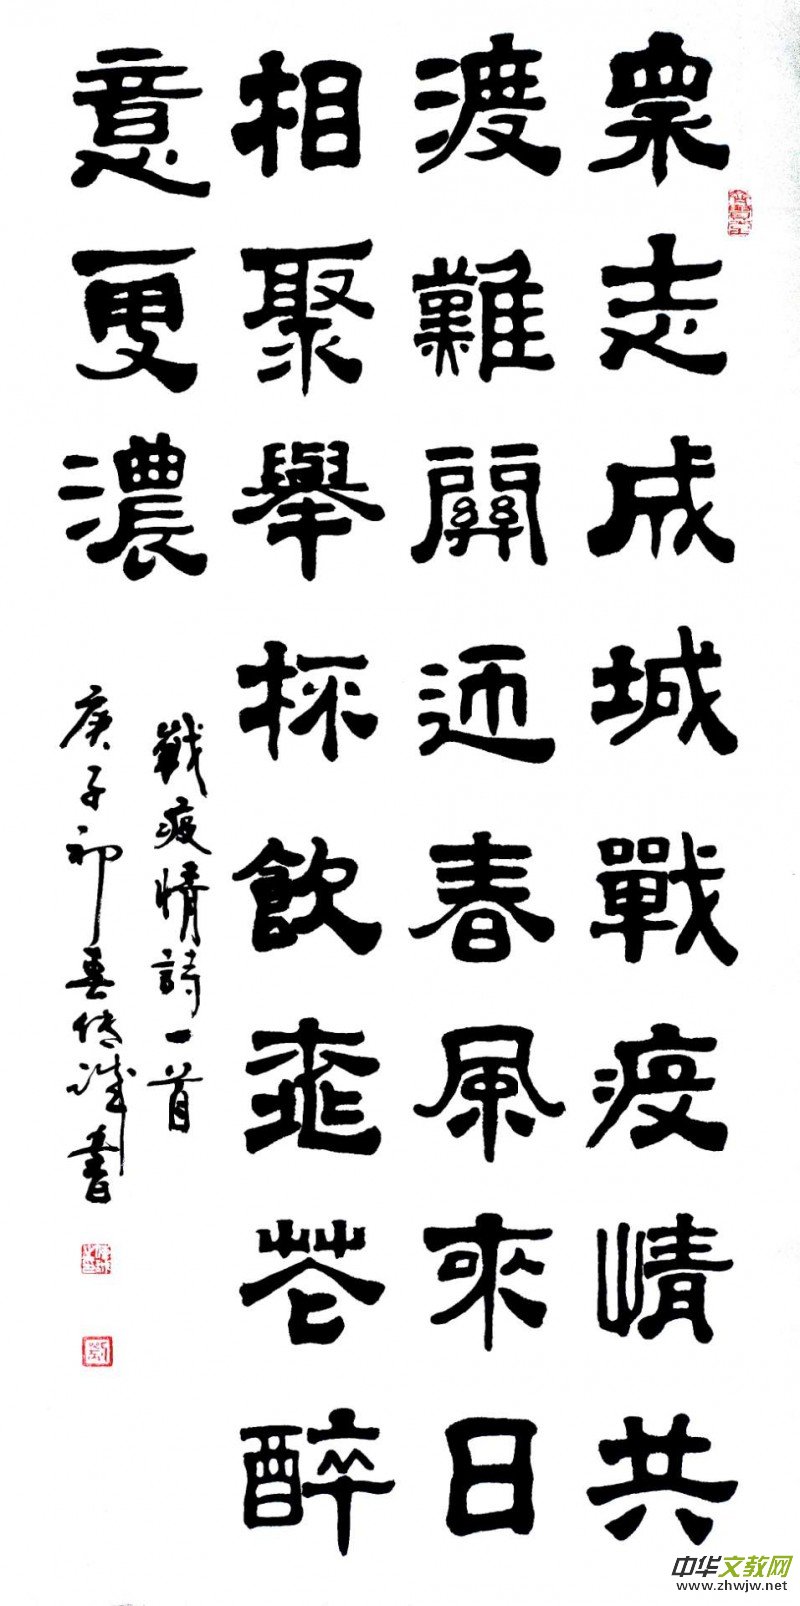 眾志成城戰疫情共
渡難關迎春風來日
相聚舉杯飲桃花醉
意更濃
戰疫情詩一首
庚子初春传诚書
中华文教网
www.zhwjw.net